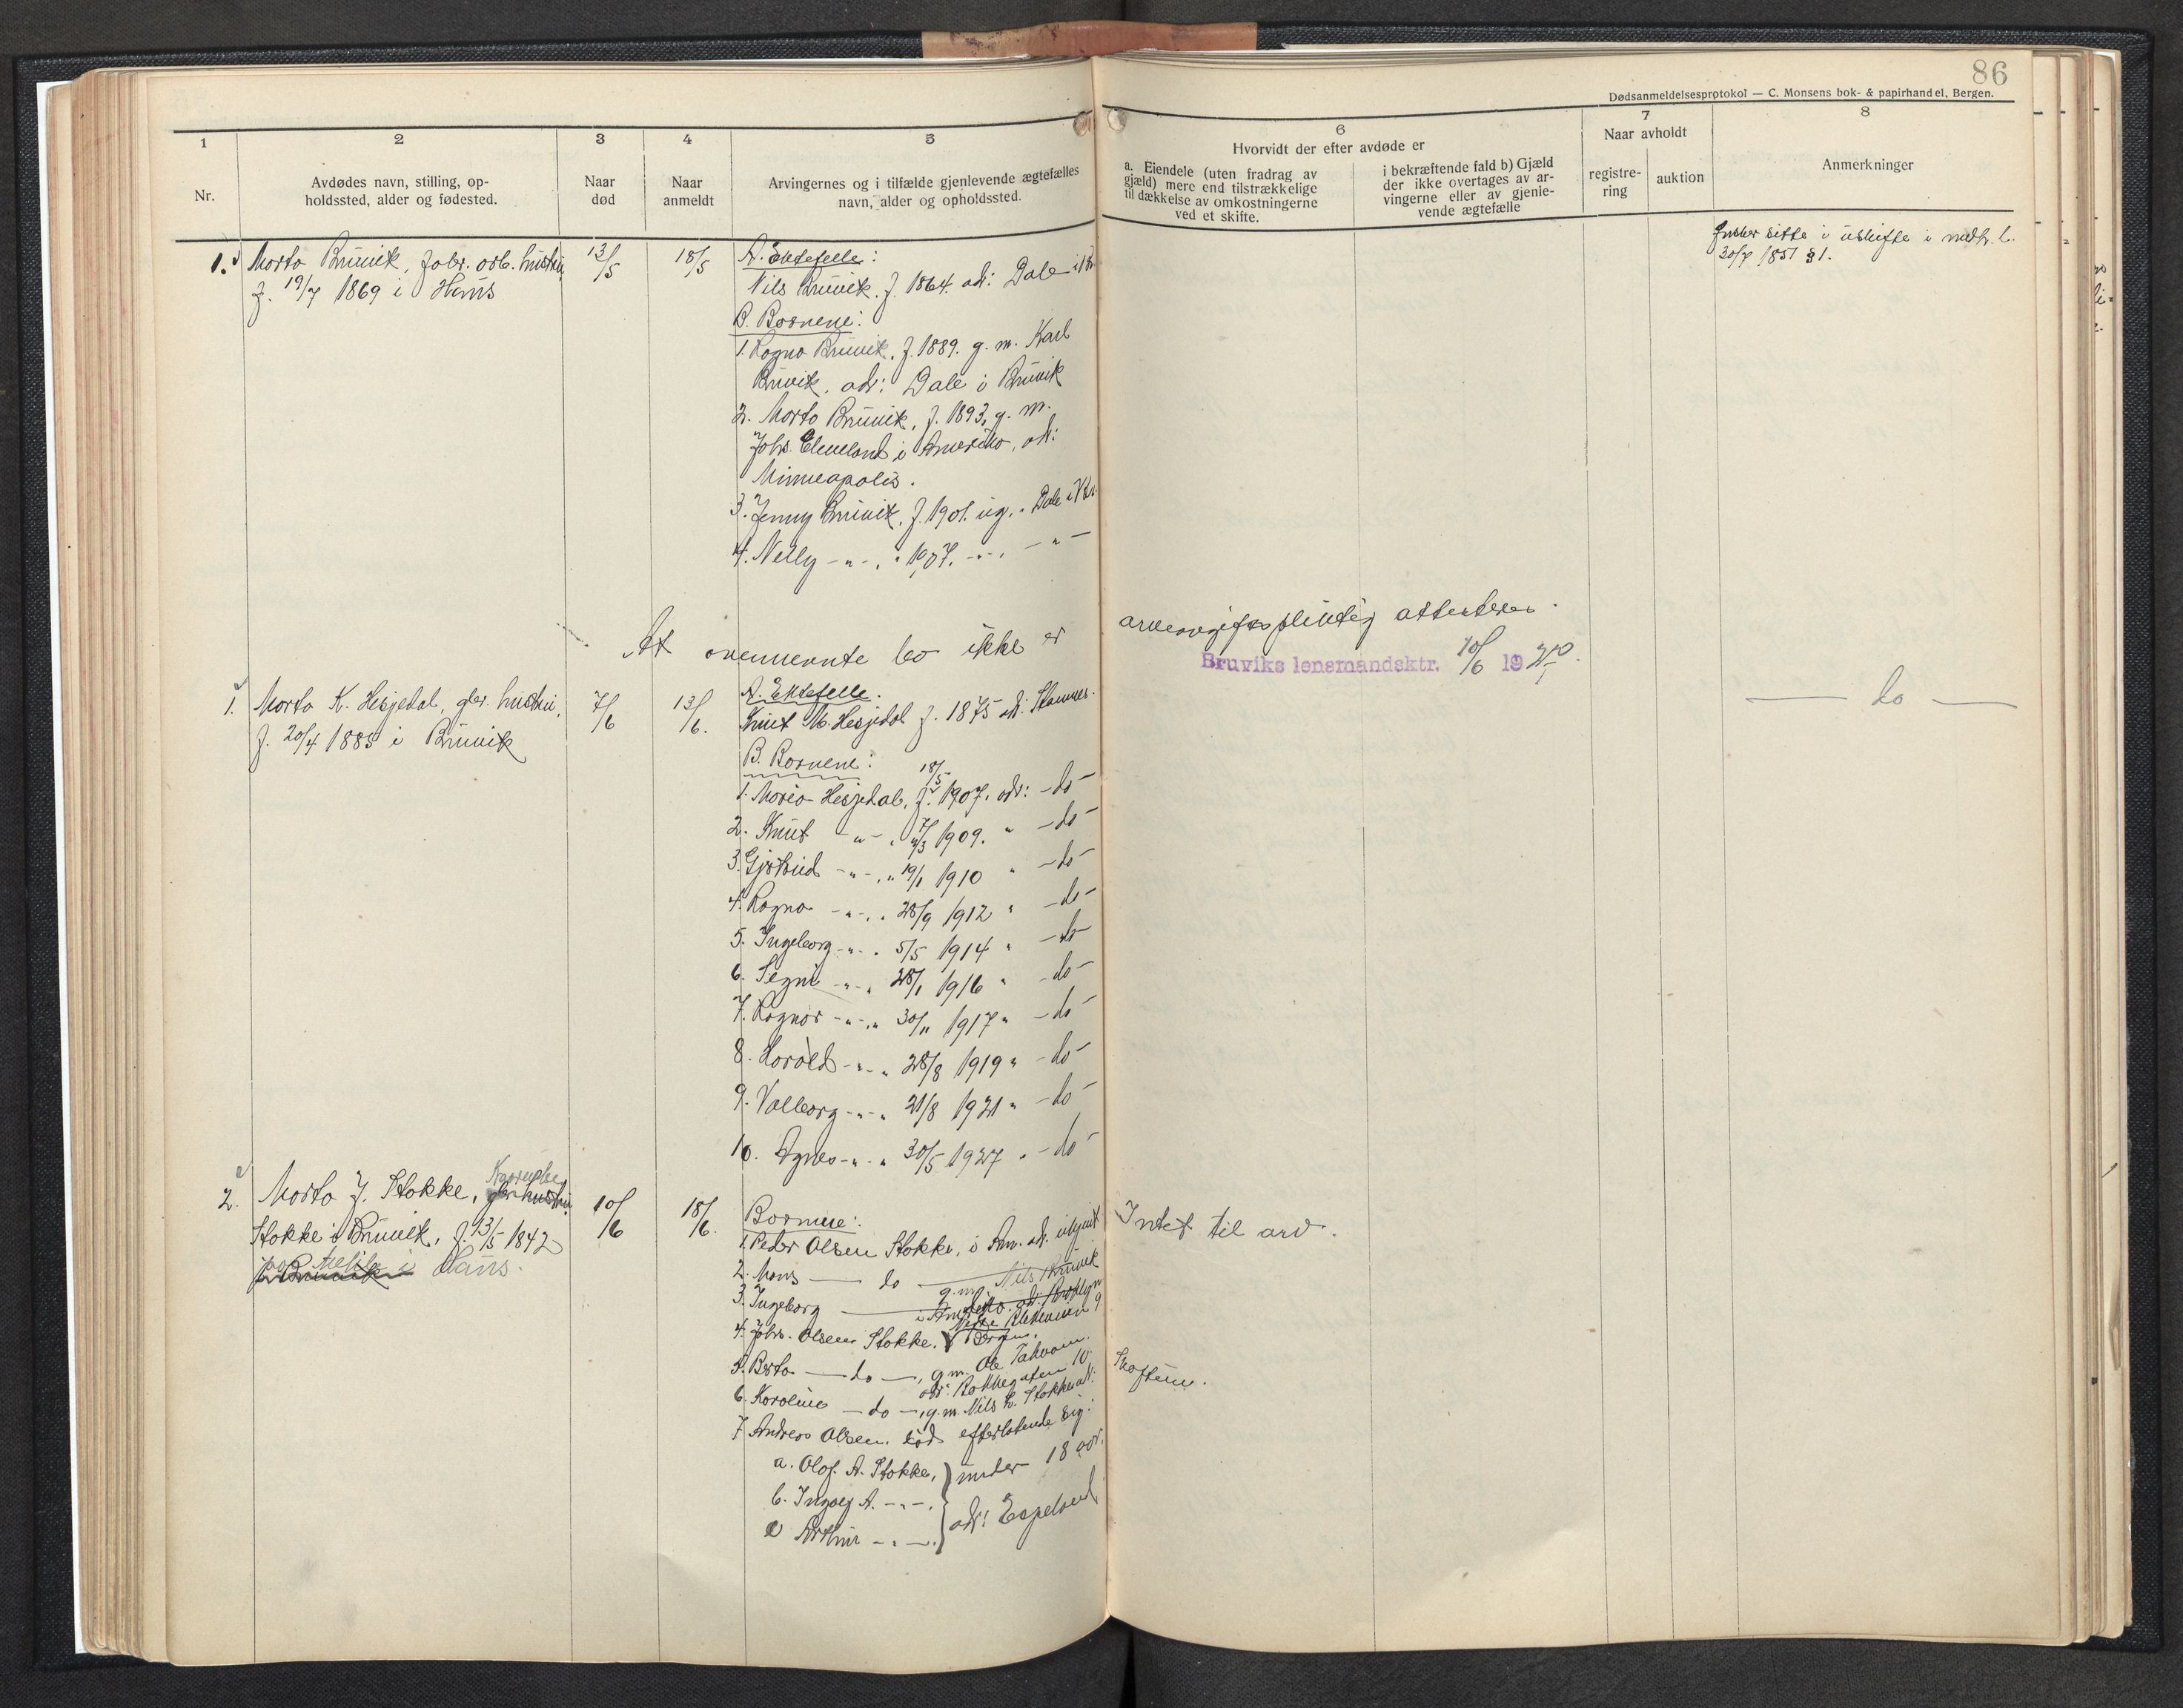 86
Dødsanmeldelsesprotokol — C. Monsens bok- & papirhandel, Bergen.
1
Nr.
2
Avdødes navn, stilling, op-
holdssted, alder og fødested.
3
Naar
død
4
Naar
anmeldt
5
Arvingernes og i tilfælde gjenlevende ægtefælles
navn, alder og opholdssted.
6
Hvorvidt der efter avdøde er
a. Eiendele (uten fradrag av
gjæld) mere end tilstrækkelige
til dækkelse av omkostningerne
ved et skifte.
i bekræftende fald b) Gjæld
der ikke overtages av ar-
vingerne eller av gjenle-
vende ægtefælle
7
Naar avholdt
registre-
ring
auktion
8
Anmerkninger
1. Marta Bruvik, fabr. arb. hustru,
f. 19/7 1869 i Haus
13/5
18/5
A. Ektefelle:
Nils Bruvik. f. 1864. adr: Dale i Br.
B. Barnene:
1. Ragna Bruvik, f. 1889. g. m. Karl
Bruvik, adr: Dale i Bruvik
2. Marta Bruvik, f. 1893, g. m.
Johs. Cleveland i Amerika, adr:
Minneapolis.
3. Jenny Bruvik, f. 1901. ug. " Dale i Br.
4. Nelly - " - , " 1907. - " - , - " -
Ønsker sitte i uskifte i medh. l.
30/7 1851 § 1.
At ovennevnte bo ikke er arveavgiftspliktig attesteres.
Bruviks lensmandsktr. 10/6 19
1. Marta K. Hesjedal, gbr. hustru,
f. 20/4 1885 i Bruvik
7/6
13/6.
A. Ektefelle.
Knut M. Hesjedal f. 1875 adr: Stamnes.
B. Barnene:
1. Maria Hesjedal, f. 18/5 1907. adr: - do -
2. Knut - " - , 1909. " - do -
3. Gjertrud - " - , " 19/1 1910 " - do -
4. Ragna - " - , " 28/9 1912 " - do -
5. Ingeborg - " - " 5/5 1914 " - do -
6. Signe - " - " 28/1 1916 " - do -
7. Ragnar - " - , " 30/11 1917 " - do -
8. Harald - " - " 28/8 1919 " - do -
9. Valborg - " - " 21/8 1921 " - do -
10. Agnes - " - " 30/5 1927 " - do -
— do —
2. Marta J. Stokke, Kaarenke gbr. hustru
Stokke i Bruvik, f. 13/5 1842
i Haus.
10/6
18/6.
Barnene:
1. Peder Olsen Stokke, i Am. adr. ukjent
2. Mons — do —
3. Ingeborg — g. m. Nils Bruvik
i Amerika. adr: Brooklyn
4. Johs. Olsen Stokke. Bergen.
5. Berta — do —, g. m. Ole Takvam.
6. Karoline — do —, g. m. Nils L. Stokke adr:
7. Andreas Olsen. død efterlatende sig:
a. Olaf A. Stokke,
b. Ingolf A. - " - .
c Arthur - " - .
under 18 aar.
adr: Espeland
Intet til arv.
Skoftun.